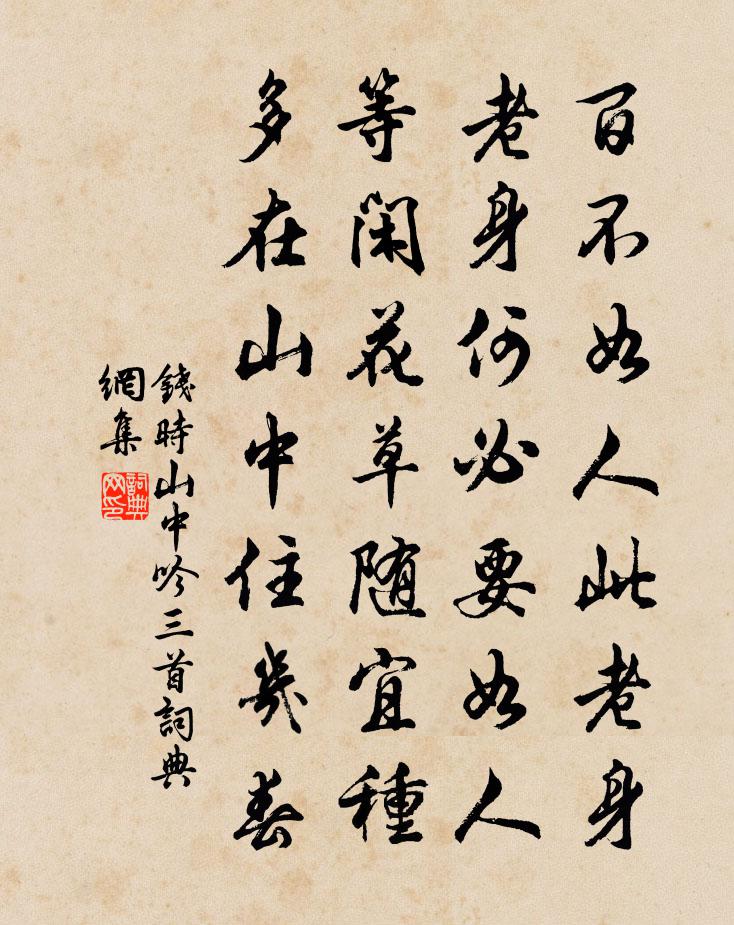 百不如人此老身
老身何必要如人
等閑花草随宜種
多在山中住幾春
錢時山中吟三首詞典
網集
詞典
网印